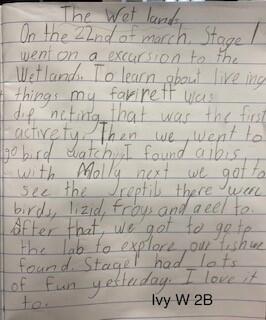 The Wet lands
On the 22nd of march, Stage 1
went on a excursion to the
Wetlands. To learn about live ing
things my farrett was
dip neting that was the first
activety. Then we went to
go bird watching I found a ibis
with Molly next we got to
see the reptils there were
birds, lizid, froys and a eel to.
After that, we got to go to
the lab to explore our
found. Stage 1 had lots
of fun yesterday. I love it
to.
Ivy W 2B